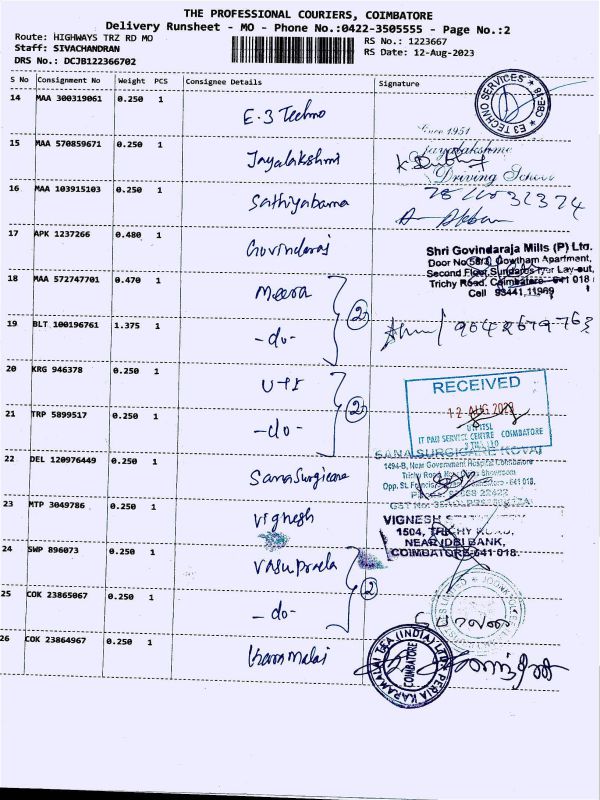 THE PROFESSIONAL COURIERS, COIMBATORE
Delivery Runsheet - MO - Phone No.:0422-3505555 - Page No.:2
Route: HIGHWAYS TRZ RD MO
RS No.: 1223667
Staff: SIVACHANDRAN
RS Date: 12-Aug-2023
DRS No.: DCJB122366702
S No Consignment No Weight PCS Consignee Details Signature
14 MAA 300319061 0.250 1 E.3 Techno
E3 TECHNO SERVICES * CBE-18 *
Since 1951
15 MAA 570859671 0.250 1 Jayalakshmi
Jayalakshmi
Driving School
16 MAA 103915103 0.250 1 Sathiyabama
17 APK 1237266 0.480 1 Govindaraj
Shri Govindaraja Mills (P) Ltd.
Door No.58/3, Gowtham Apartment,
Second Floor, Lay-out,
Trichy Road, Coimbatore - 641 018
Cell 93441,11969
18 MAA 572747701 0.470 1 Meera
2
19 BLT 100196761 1.375 1 -do-
20 KRG 946378 0.250 1 UTI
2
RECEIVED
12 AUG 2023
UTIITSL
IT PAN SERVICE CENTRE COIMBATORE
21 TRP 5899517 0.250 1 -do-
SANA SURGICARE KOVAI
22 DEL 120976449 0.250 1 Sana Surgicare
1494-B, New Government Hospital Coimbatore
Trichy Road, Showroom
Opp. St. Coimbatore - 641 018.
23 MTP 3049786 0.250 1 Vignesh
VIGNESH
1504, TRICHY ROAD,
NEAR IDBI BANK,
COIMBATORE-641 018.
24 SWP 896073 0.250 1 Vasuprada
2
25 COK 23865067 0.250 1 -do-
26 COK 23864967 0.250 1 Karamalai
PERIA KARAMALAI TEA (INDIA) LTD
COIMBATORE